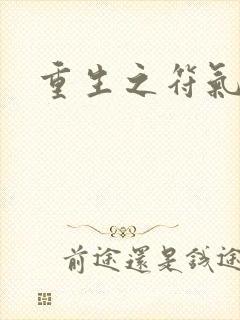 重生之符氣
前途還是錢途